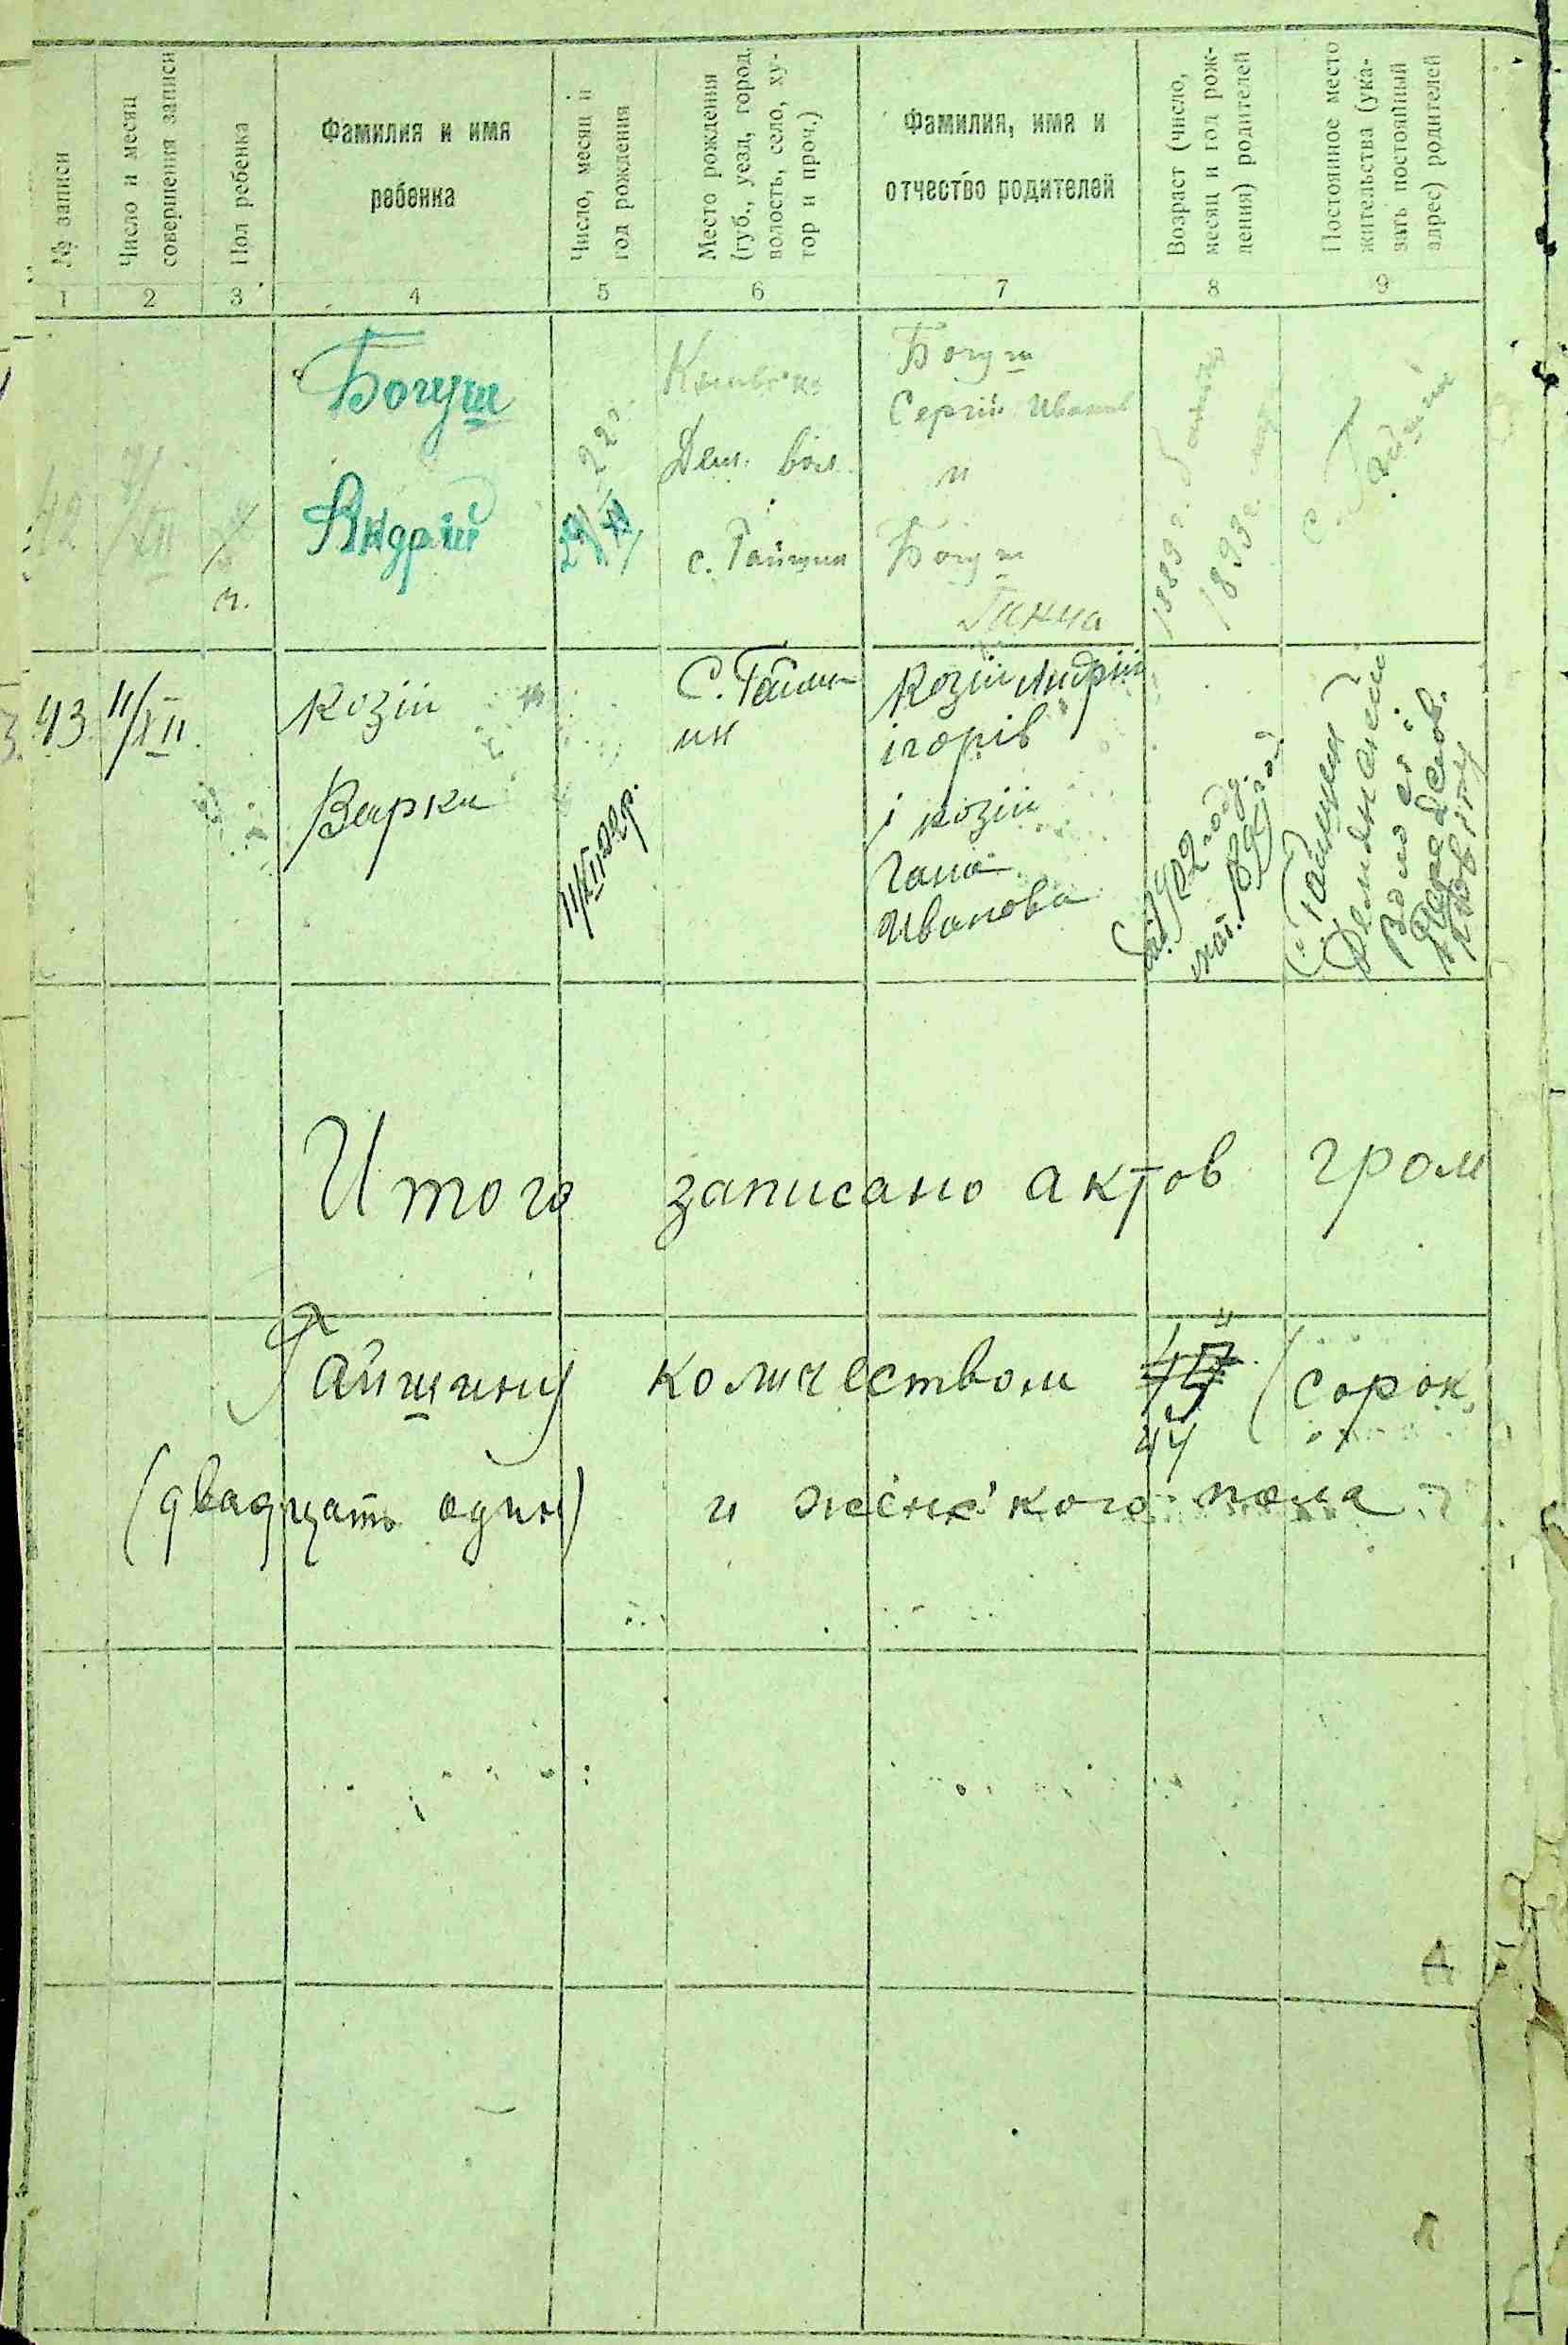 № записи
Число и месяц
совершения записи
Пол ребенка
Фамилия и имя
ребенка
Число, месяц и
год рождения
Место рождения
(губ., уезд, город,
волость, село, ху-
тор и проч.)
Фамилия, имя и
отчество родителей
Возраст (число,
месяц и год рож-
дения) родителей
Постоянное место
жительства (ука-
зать постоянный
адрес) родителей
1 2 3 4 5 6 7 8 9
42
/XII
ч.
Богуш
Андрій
29/XI
22 г.
Дем. вол.
с. Гайшин
Богуш
Сергій Иванов
и
Богуш
Ганна
1889 г.
1893 г.
с.
43
11/XII
Козій
Варка
11/XII 22 р.
С. Гайш
ин
Козій Андрій
ігорів
і козій
Гана
Иванова
1902 году.
мат. 189
с. Гайшин
Демянской
Волості
Переяслов.
повіту
Итого записано актов гром
Гайшину количеством 44 (сорок
(двадцать один) и женского пола